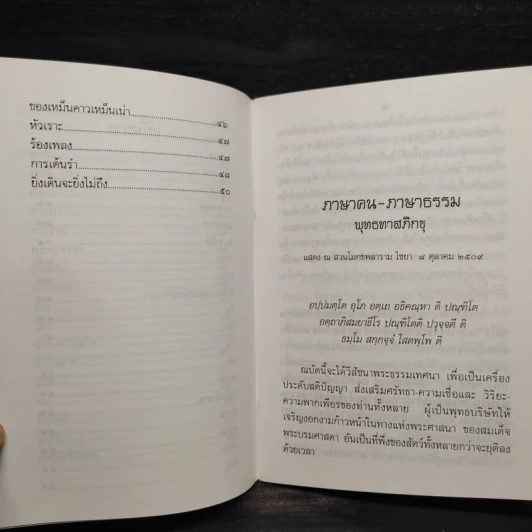 ของเหม็นคาวเหม็นเน่า........................๔๖
หัวเราะ........................๔๗
ร้องเพลง........................๔๗
การเต้นรำ........................๔๘
ยิ่งเดินจะยิ่งไม่ถึง........................๕๐
ภาษาคน-ภาษาธรรม
พุทธทาสภิกขุ
แสดง ณ สวนโมกขพลาราม ไชยา ๘ ตุลาคม ๒๕๐๙
อปฺปมตฺโต อุโภ อตฺเถ อธิคณฺหา ติ ปณฺฑิโต
อตฺถาภิสมยาธีโร ปณฺฑิโตติ ปวุจฺจตี ติ
ธมฺโม สกฺกจฺจํ โสตพฺโพ ติ
ณ บัดนี้จะได้วิสัชนาพระธรรมเทศนา เพื่อเป็นเครื่อง
ประดับสติปัญญา ส่งเสริมศรัทธา-ความเชื่อและ วิริยะ-
ความพากเพียรของท่านทั้งหลาย ผู้เป็นพุทธบริษัทให้
เจริญงอกงามก้าวหน้าในทางแห่งพระศาสนา ของสมเด็จ
พระบรมศาสดา อันเป็นที่พึ่งของสัตว์ทั้งหลายกว่าจะยุติลง
ด้วยเวลา